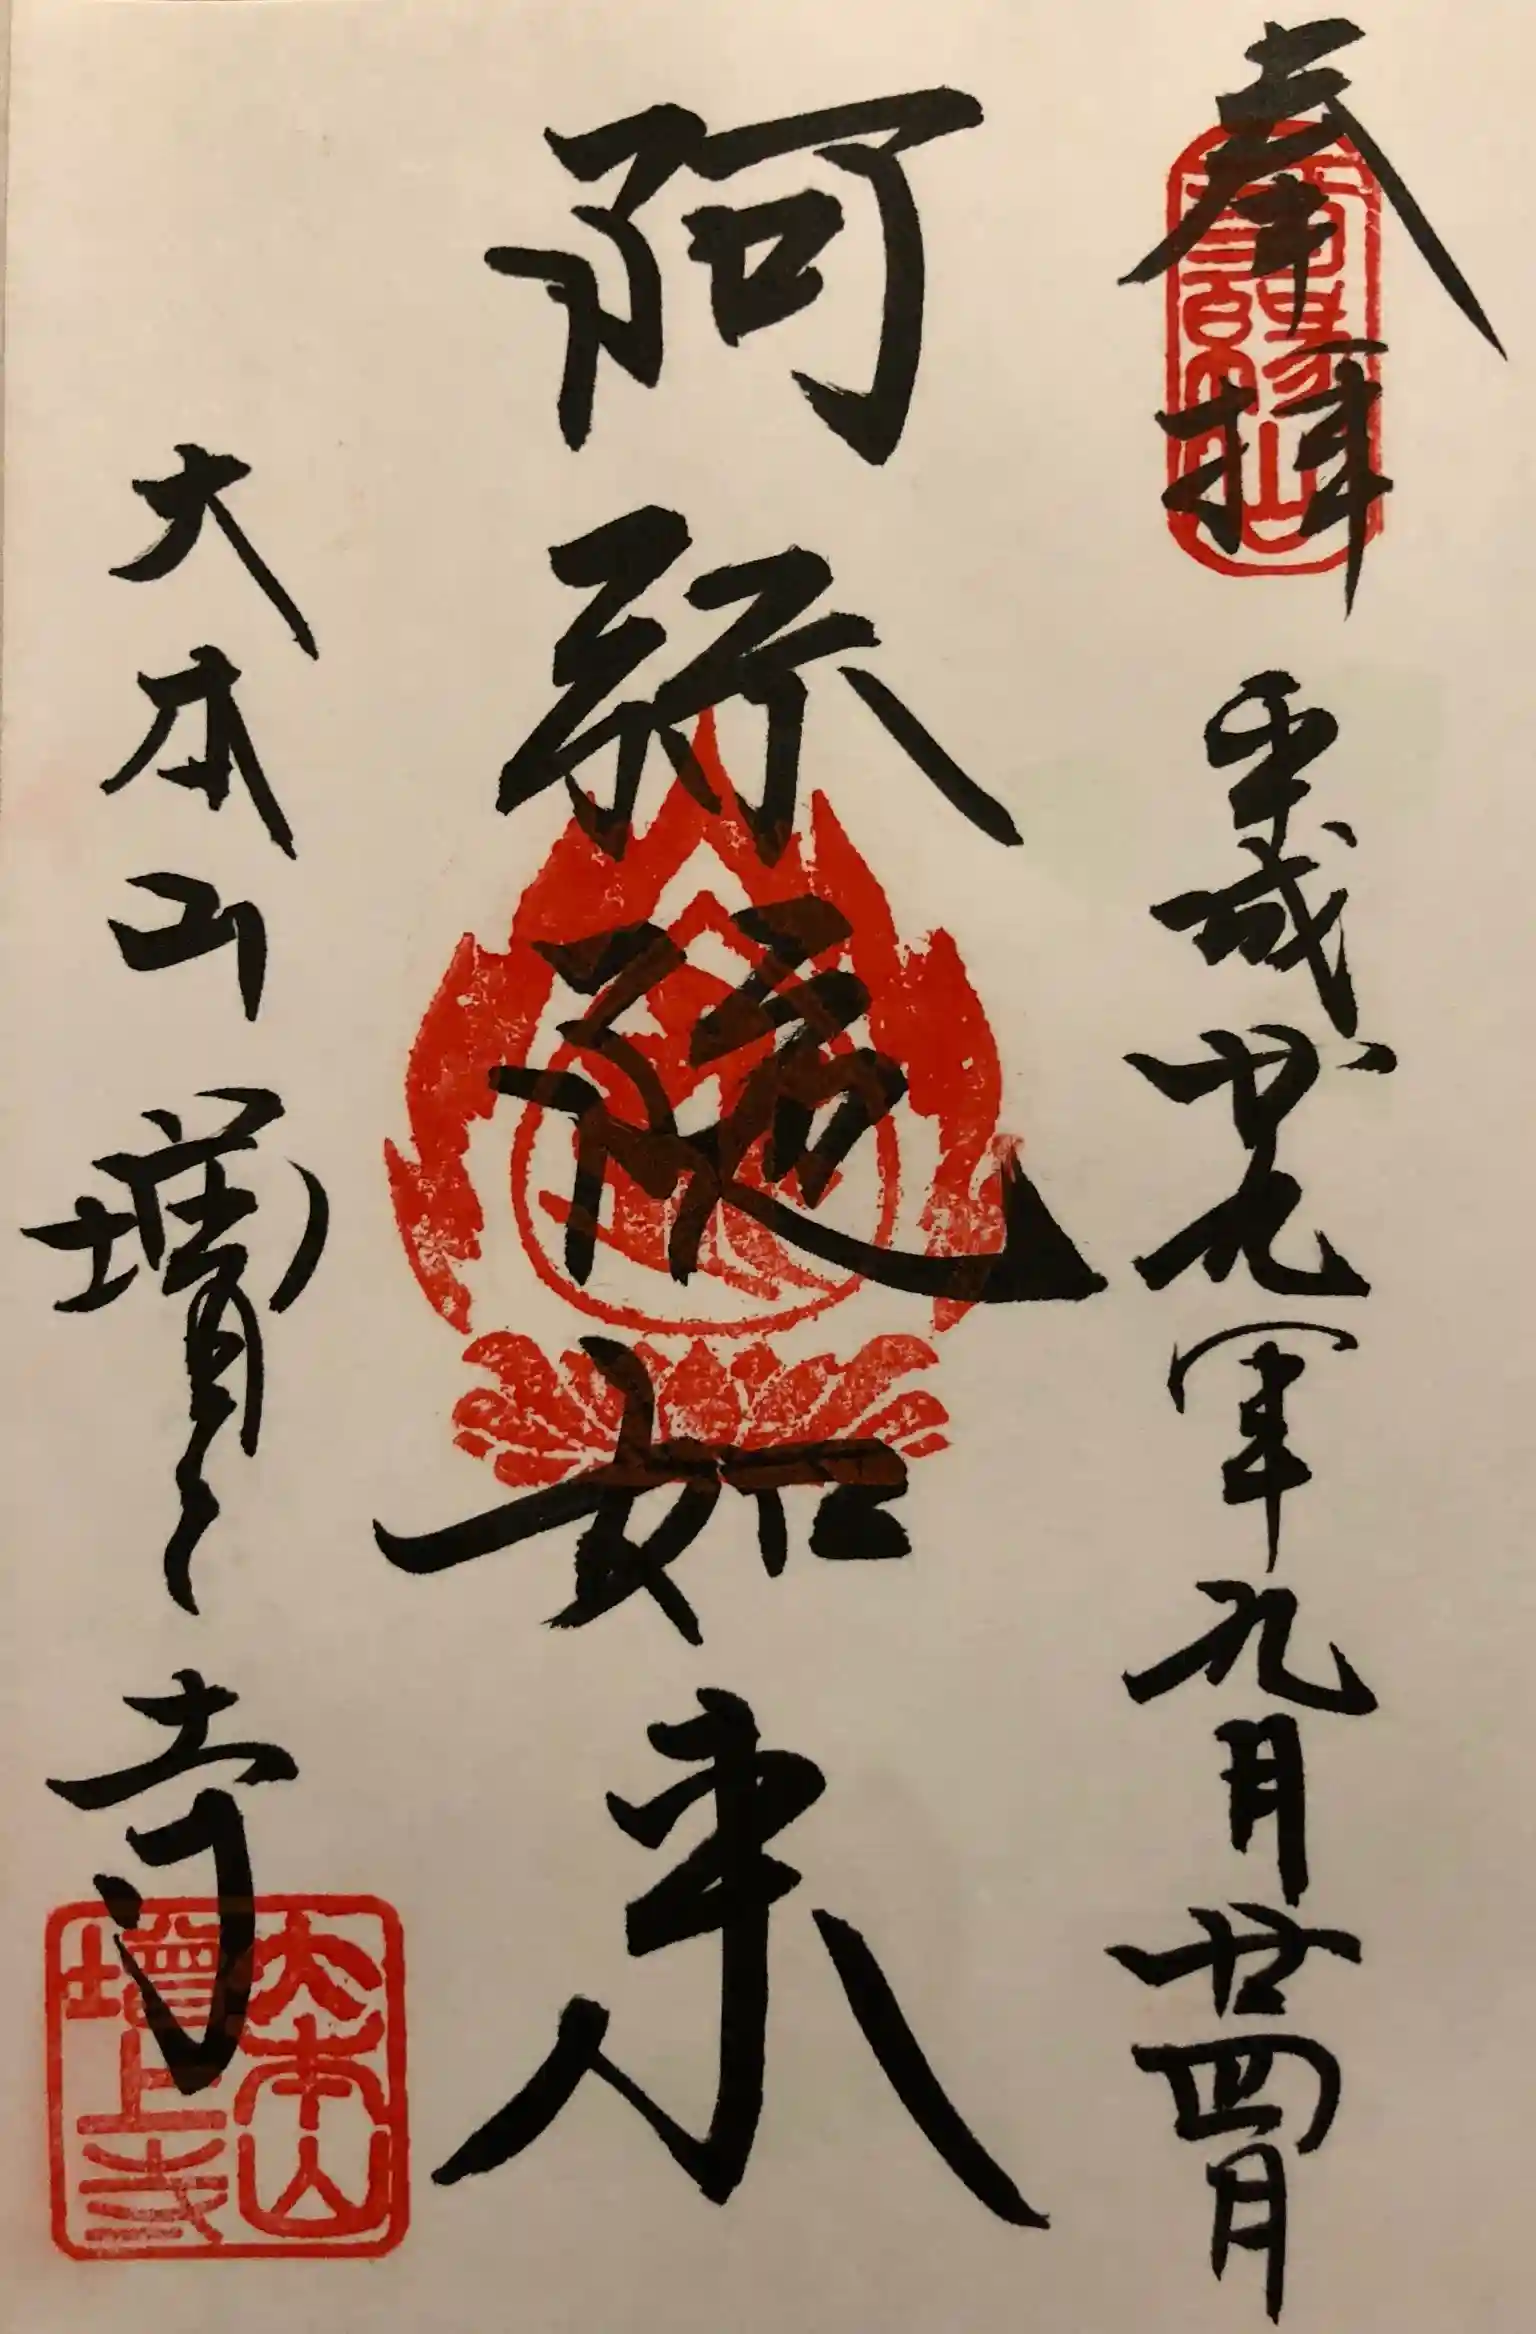 奉拝 平成廿九年九月廿四日
阿弥陀如来
大本山 増上寺
大本山
增上寺